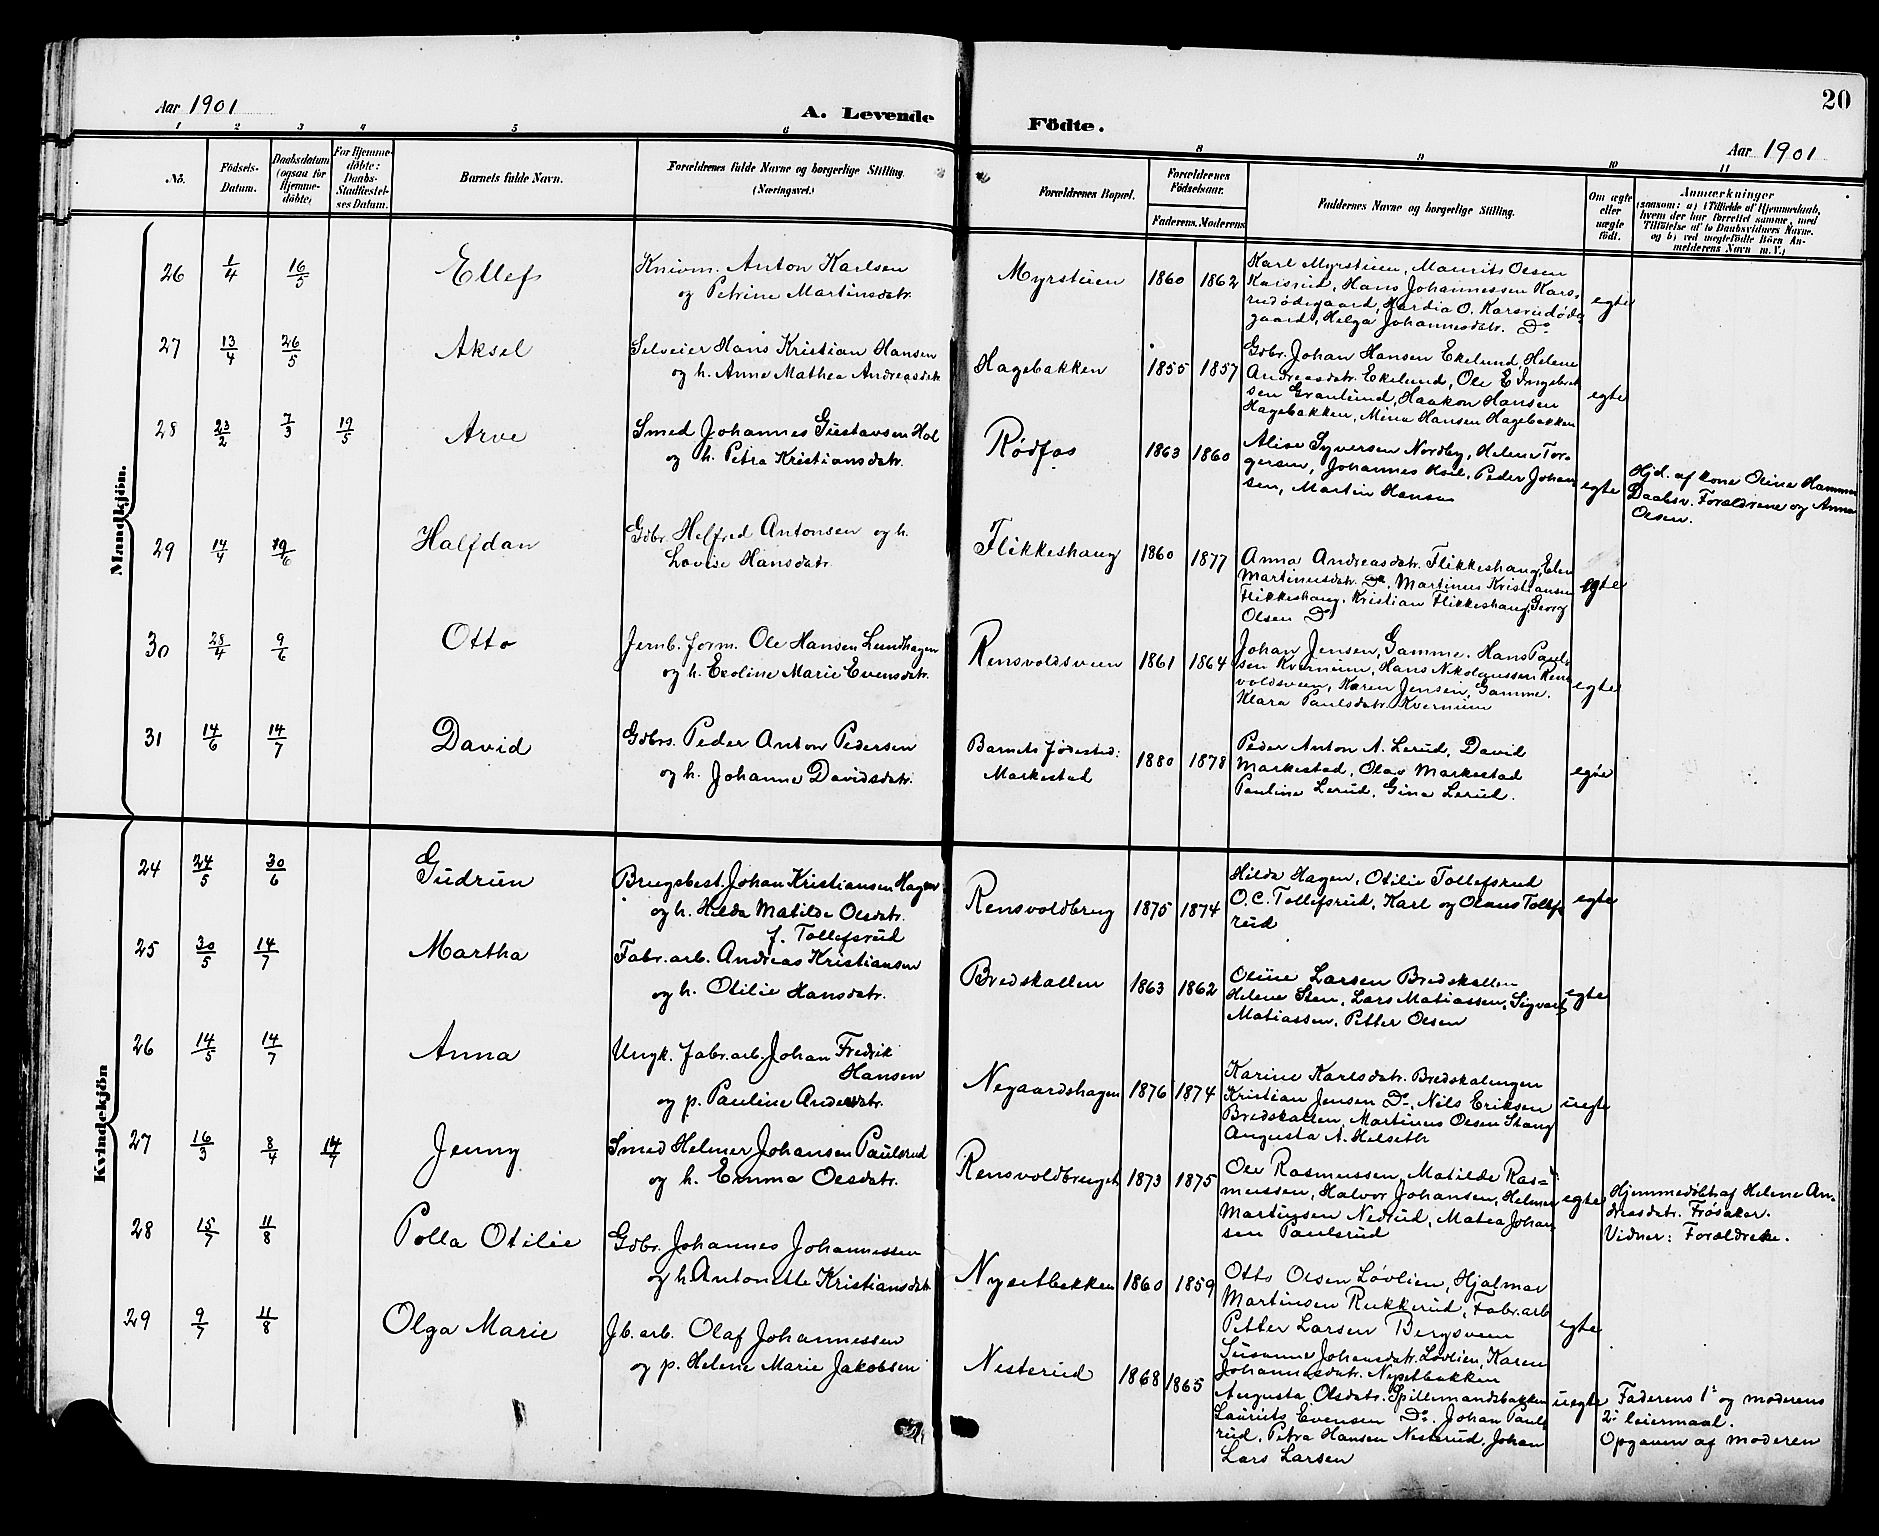 Aar 1901
A. Levende Födte.
20
Aar 1901
1 2 3 4 5 6 8 9 10 11
No.
Födsels-Datum.
Daabsdatum (ogsaa for Hjemmedöbte)
For Hjemmedöbte: Daabs-Stadfæstelses Datum.
Barnets fulde Navn.
Forældrenes fulde Navne og borgerlige Stilling. (Næringsvei.)
Forældrenes Bopæl.
Forældrenes Födselsaar.
Faderens. Moderens
Faddernes Navne og borgerlige Stilling.
Om ægte eller uægte födt.
Anmærkninger
(saasom: a) i Tilfælde af Hjemmedaab, hvem der har forrettet samme, med Tilföielse af to Daabsvidners Navne. og b) ved uægtefödte Börn Anmelderens Navn m. V.)
Mandkjön.
26 1/4 16/5 Ellef
Knivm. Anton Karlsen
og Petrine Martinsdatr.
Myrstuen 1860 1862
Karl Myrstuen, Maurits Olsen
Karsrud, Hans Johannessen Kars-
rudødegaard, Mardia O. Karsrudøde-
gaard, Helga Johannesdatr. Do
egte
27 13/4 26/5 Aksel
Selveier Hans Kristian Hansen
og h. Anne Mathea Andreasdatr
Hagebakken 1855 1857
Gbr. Johan Hansen Ekelund, Helene
Andreasdatr. Ekelund, Ole E Ingebret
sen Granlund, Haakon Hansen
Hagebakken, Mina Hansen Hagebakken
egte
28 23/2 7/3 19/5 Arve
Smed Johannes Gustavsen Hol
og h. Petra Kristiansdatr.
Rødfos 1863 1860
Alise Syversen Nordby, Helene Tor-
gersen, Johannes Hol, Peder Johan
sen, Martin Hansen
egte
Hjd. af kone Oline Hammer
Daabsv. Forældrene og Anna
Olsen.
29 14/4 19/6 Halfdan
Gbr. Helfred Antonsen og h.
Lovise Hansdatr
Flikkeshaug 1860 1877
Anna Andreasdatr. Flikkeshaug, Elen
Martinusdatr. Do, Martinus Kristiansen
Flikkeshaug, Kristian Flikkeshaug, Georg
Olsen Do
egte
30 28/4 9/6 Otto
Jernb. form. Ole Hansen Lundhagen
og h. Eveline Marie Evensdatr.
Rensvoldsveen 1861 1864
Johan Jensen, Gamme. Hans Paul-
sen Kvernum, Hans Nikolaussen Rens
voldsveen, Karen Jensen, Gamme.
Klara Paulsdatr. Kvernum
egte
31 14/6 14/7 David
Gbrs. Peder Anton Pedersen
og h. Johanne Davidsdatr.
Barnets fødested:
Markestad 1880 1878
Peder Anton A. Lerud, David
Markestad, Olav Markestad
Pauline Lerud, Gina Lerud.
egte
Kvindekjön
24 24/5 30/6 Gudrun
Brugsbest. Johan Kristiansen Hagen
og h. Hilda Matilde Olsdatr.
f. Tollefsrud
Rensvoldbrug 1875 1874
Hilda Hagen, Otilie Tollefsrud
O. C. Tollefsrud, Karl og Olaus Tollefs
rud
egte
25 30/5 14/7 Martha
Fabr. arb. Andreas Kristiansen
og h. Otilie Hansdatr.
Bredskallen 1863 1862
Oline Larsen Bredskallen
Helene Sten, Lars Matiassen, Sigvart
Matiassen, Petter Olsen
egte
26 14/5 14/7 Anna
Ungk. fabr. arb. Johan Fredrik
Hansen
og p. Pauline Andersdatr.
Negaardshagen 1876 1874
Karine Karlsdatr. Bredskalengen
Kristian Jensen Do, Nils Eriksen
Bredskallen, Martinus Olsen Stang
Augusta A. Helseth
uegte
27 16/3 8/4 14/7 Jenny
Smed Helmer Johansen Paulsrud
og h. Emma Olsdatr.
Rensvoldbruget 1873 1875
Ole Rasmussen, Matilde Ras-
mussen, Halvor Johansen, Helmer
Martinsen Nedrud, Matea Johan
sen Paulsrud
egte
Hjemmedøbt af Helene An-
dreasdatr. Frøsaker.
Vidner: Forældrene.
28 15/7 11/8 Polla Otilie
Gbr. Johannes Johannessen
og h. Antonette Kristiansdatr
Nysetbakken 1860 1859
Otto Olsen Løvlien, Hjalmar
Martinsen Rukkerud, Fabr. arb
Petter Larsen Bergsveen
Susanne Johansdatr. Løvlien, Karen
Johannesdatr. Nysetbakken
egte
29 9/7 11/8 Olga Marie
Jb. arb. Olaf Johannessen
og p. Helene Marie Jakobsen
Nesterud 1868 1865
Augusta Olsdatr. Spillemandsbakken
Laurits Evensen Do. Johan Pauls
rud, Petra Hansen Nesterud, Johan
Lars Larsen
uegte
Faderens 1ste og moderens
2det leiermaal.
Opgaven af moderen